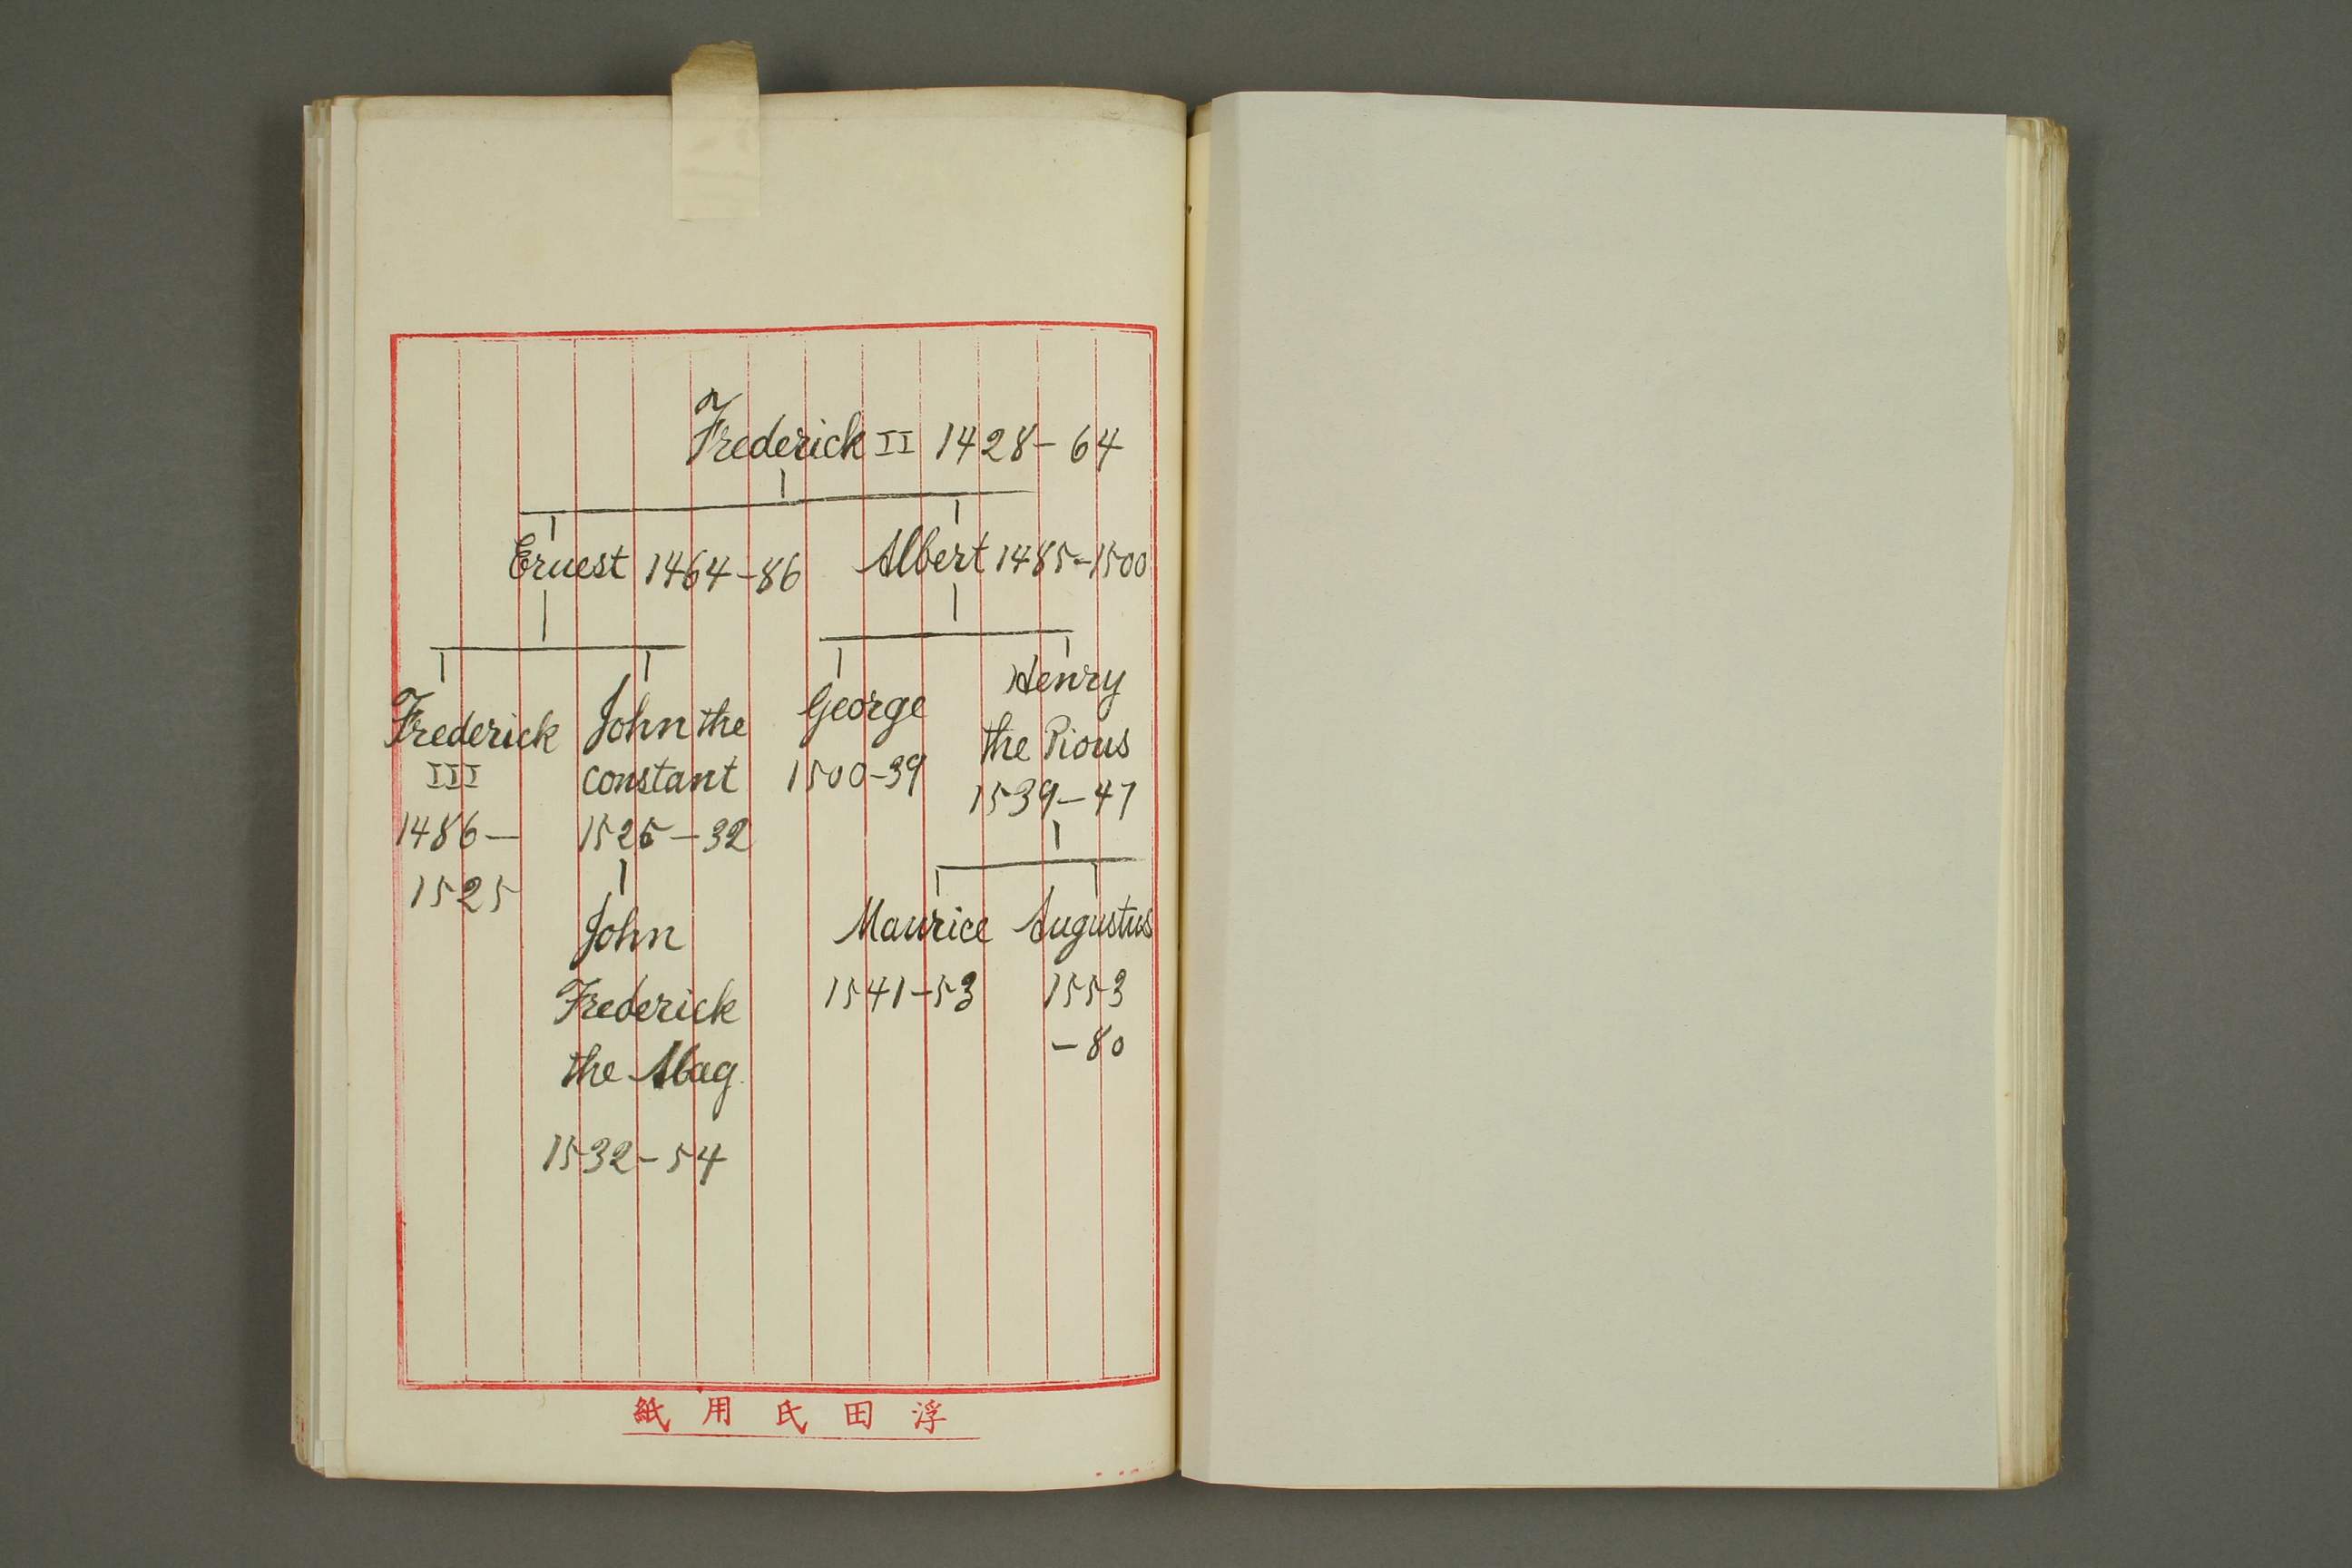 Frederick II 1428-64
Ernest 1464-86
Albert 1485-1500
Frederick
III
1486-
1525
John the
constant
1525-32
George
1500-39
Henry
the Pious
1539-47
John
Frederick
the Mag.
1532-54
Maurice
1541-53
Augustus
1553
-80
紙用氏田浮